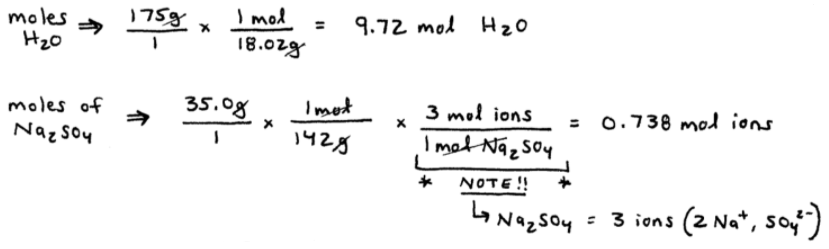 moles H₂O ⇒ 175g/1 × 1 mol/18.02g = 9.72 mol H₂O
moles of Na₂SO₄ ⇒ 35.0g/1 × 1 mol/142g × 3 mol ions/1 mol Na₂SO₄ = 0.738 mol ions
* NOTE!! *
↳ Na₂SO₄ = 3 ions (2 Na⁺, SO₄²⁻)